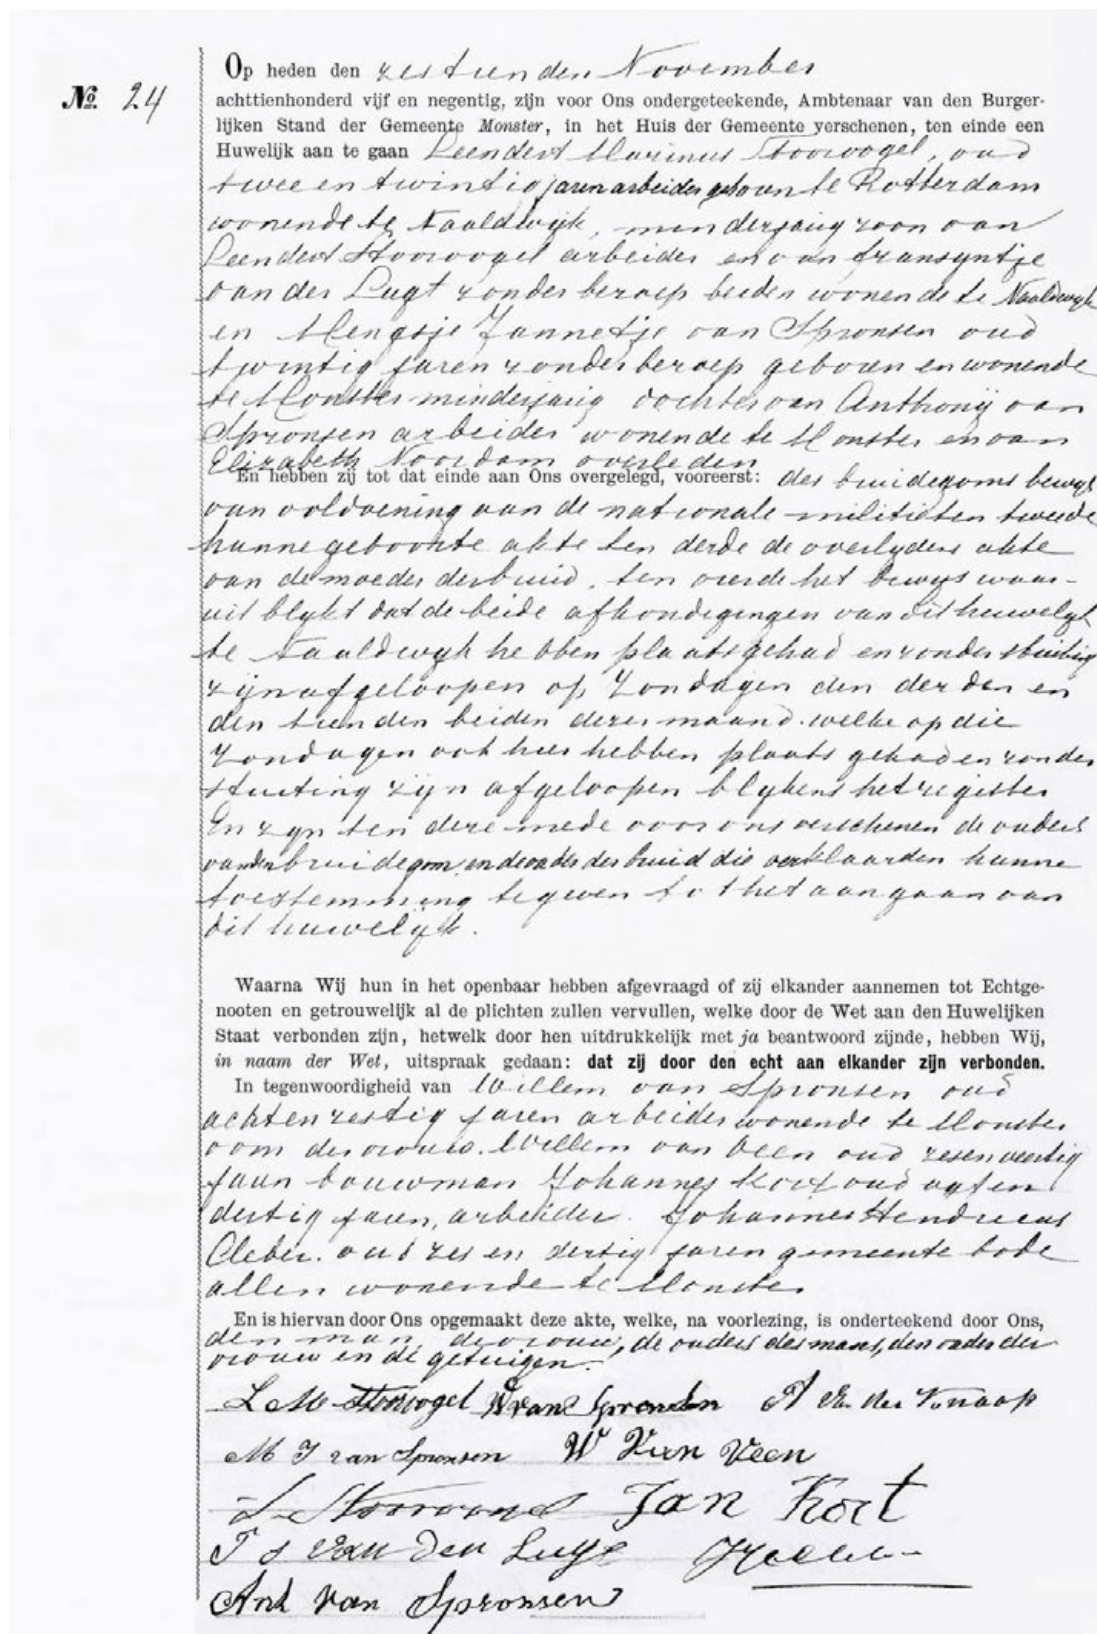 Op heden den zestienden November
No. 24
achttienhonderd vijf en negentig, zijn voor Ons ondergeteekende, Ambtenaar van den Burger-
lijken Stand der Gemeente Monster, in het Huis der Gemeente verschenen, ten einde een
Huwelijk aan te gaan Leendert Marinus Stoorvogel, oud
twee en twintig jaren arbeider geboren te Rotterdam
wonende te Naaldwijk, minderjarig zoon van
Leendert Stoorvogel arbeider en van Fransyntje
van der Lugt zonder beroep beiden wonende te Naaldwyk
en Mengsje Jannetje van Spronsen oud
twintig jaren zonder beroep geboren en wonende
te Monster minderjarig dochter van Anthonij van
Spronsen arbeider wonende te Monster en van
Elizabeth Noordam overleden
En hebben zij tot dat einde aan Ons overgelegd, vooreerst: des bruidegoms bewys
van voldoening aan de nationale militie ten tweede
hunne geboorte akte ten derde de overlydens akte
van de moeder der bruid, ten vierde het bewys waar-
uit blykt dat de beide afkondigingen van dit huwelyk
te Naaldwyk hebben plaats gehad en zonder stuiting
zijn afgeloopen op Zondagen den derden en
den tienden beiden dezer maand. welke op die
Zondagen ook hier hebben plaats gehad en zonder
stuiting zijn afgeloopen blykens het register
En zyn ten deze mede voor ons verschenen de ouders
van den bruidegom en de vader der bruid die verklaarden hunne
toestemming te geven tot het aangaan van
dit huwelijk.
Waarna Wij hun in het openbaar hebben afgevraagd of zij elkander aannemen tot Echtge-
nooten en getrouwelijk al de plichten zullen vervullen, welke door de Wet aan den Huwelijken
Staat verbonden zijn, hetwelk door hen uitdrukkelijk met ja beantwoord zijnde, hebben Wij,
in naam der Wet, uitspraak gedaan: dat zij door den echt aan elkander zijn verbonden.
In tegenwoordigheid van Willem van Spronsen oud
acht en zestig jaren arbeider wonende te Monster
oom der vrouw. Willem van Veen oud zes en veertig
jaren bouwman Johannes Kort oud agt en
dertig jaren, arbeider. Johannes Hendricus
Cleber. oud zes en dertig jaren gemeente bode
allen wonende te Monster
En is hiervan door Ons opgemaakt deze akte, welke, na voorlezing, is onderteekend door Ons,
den man, de vrouw, de ouders des mans, den vader der
vrouw en de getuigen.
L M Stoorvogel W van Spronsen A v. der Knaap
M J van Spronsen W Van Veen
L Stoorvogel Jan Kort
F s van der Lugt
Ant van Spronsen